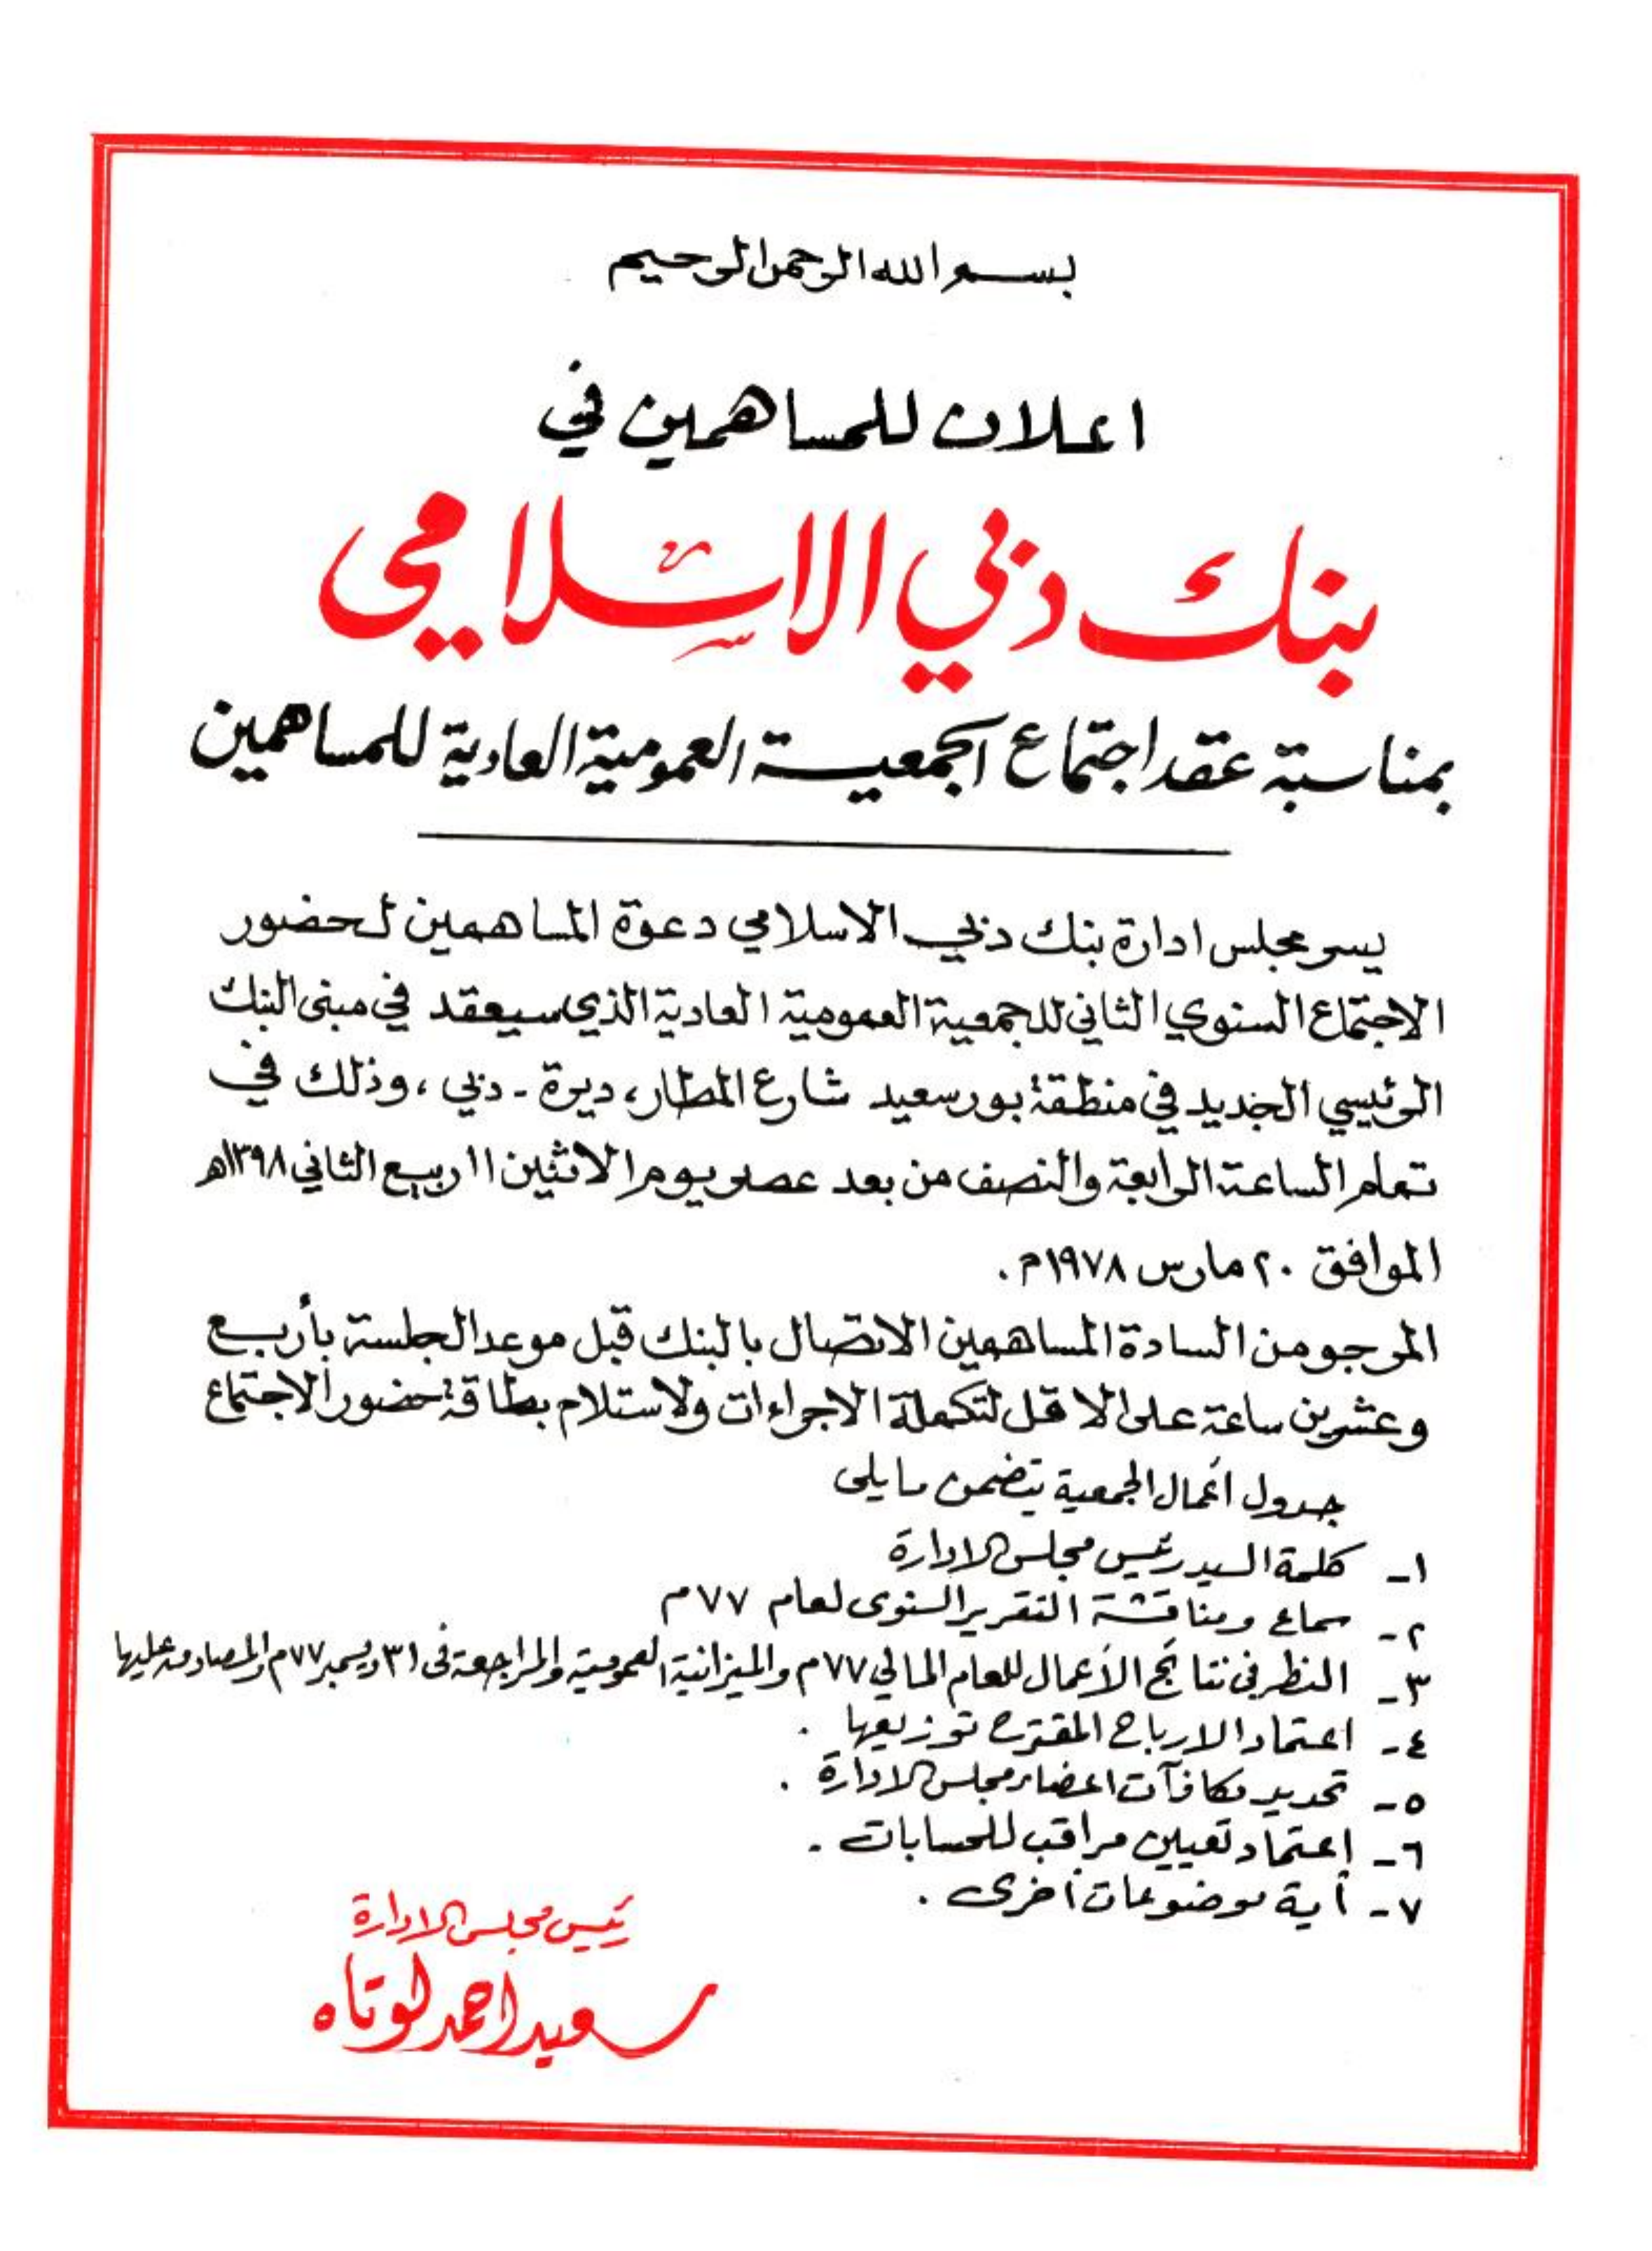 بسم الله الرحمن الرحيم
اعلان للمساهمين في
بنك دبي الاسلامي
بمناسبة عقد اجتماع الجمعية العمومية العادية للمساهمين
يسر مجلس ادارة بنك دبي الاسلامي دعوة المساهمين لحضور
الاجتماع السنوي الثاني للجمعية العمومية العادية الذي سيعقد في مبنى البنك
الرئيسي الجديد في منطقة بور سعيد شارع المطار، ديرة - دبي ، وذلك في
تمام الساعة الرابعة والنصف من بعد عصر يوم الاثنين ١١ ربيع الثاني ١٣٩٨هـ
الموافق ٢٠ مارس ١٩٧٨م .
المرجو من السادة المساهمين الاتصال بالبنك قبل موعد الجلسة بأربع
وعشرين ساعة على الاقل لتكملة الاجراءات ولاستلام بطاقة حضور الاجتماع
جدول أعمال الجمعية يتضمن مايلى
١- كلمة السيد رئيس مجلس الادارة
٢- سماع ومناقشة التقرير السنوى لعام ٧٧م
٣- النظر فى نتائج الأعمال للعام المالي ٧٧م والميزانية العمومية والمراجعة فى ٣١ ديسمبر ٧٧م والمصادقة عليها
٤- اعتماد الارباح المقترح توزيعها .
٥- تحديد مكافآت اعضاء مجلس الادارة .
٦- إعتماد تعيين مراقب للحسابات .
٧- أية موضوعات أخرى .
رئيس مجلس الادارة
سعيد احمد لوتاه